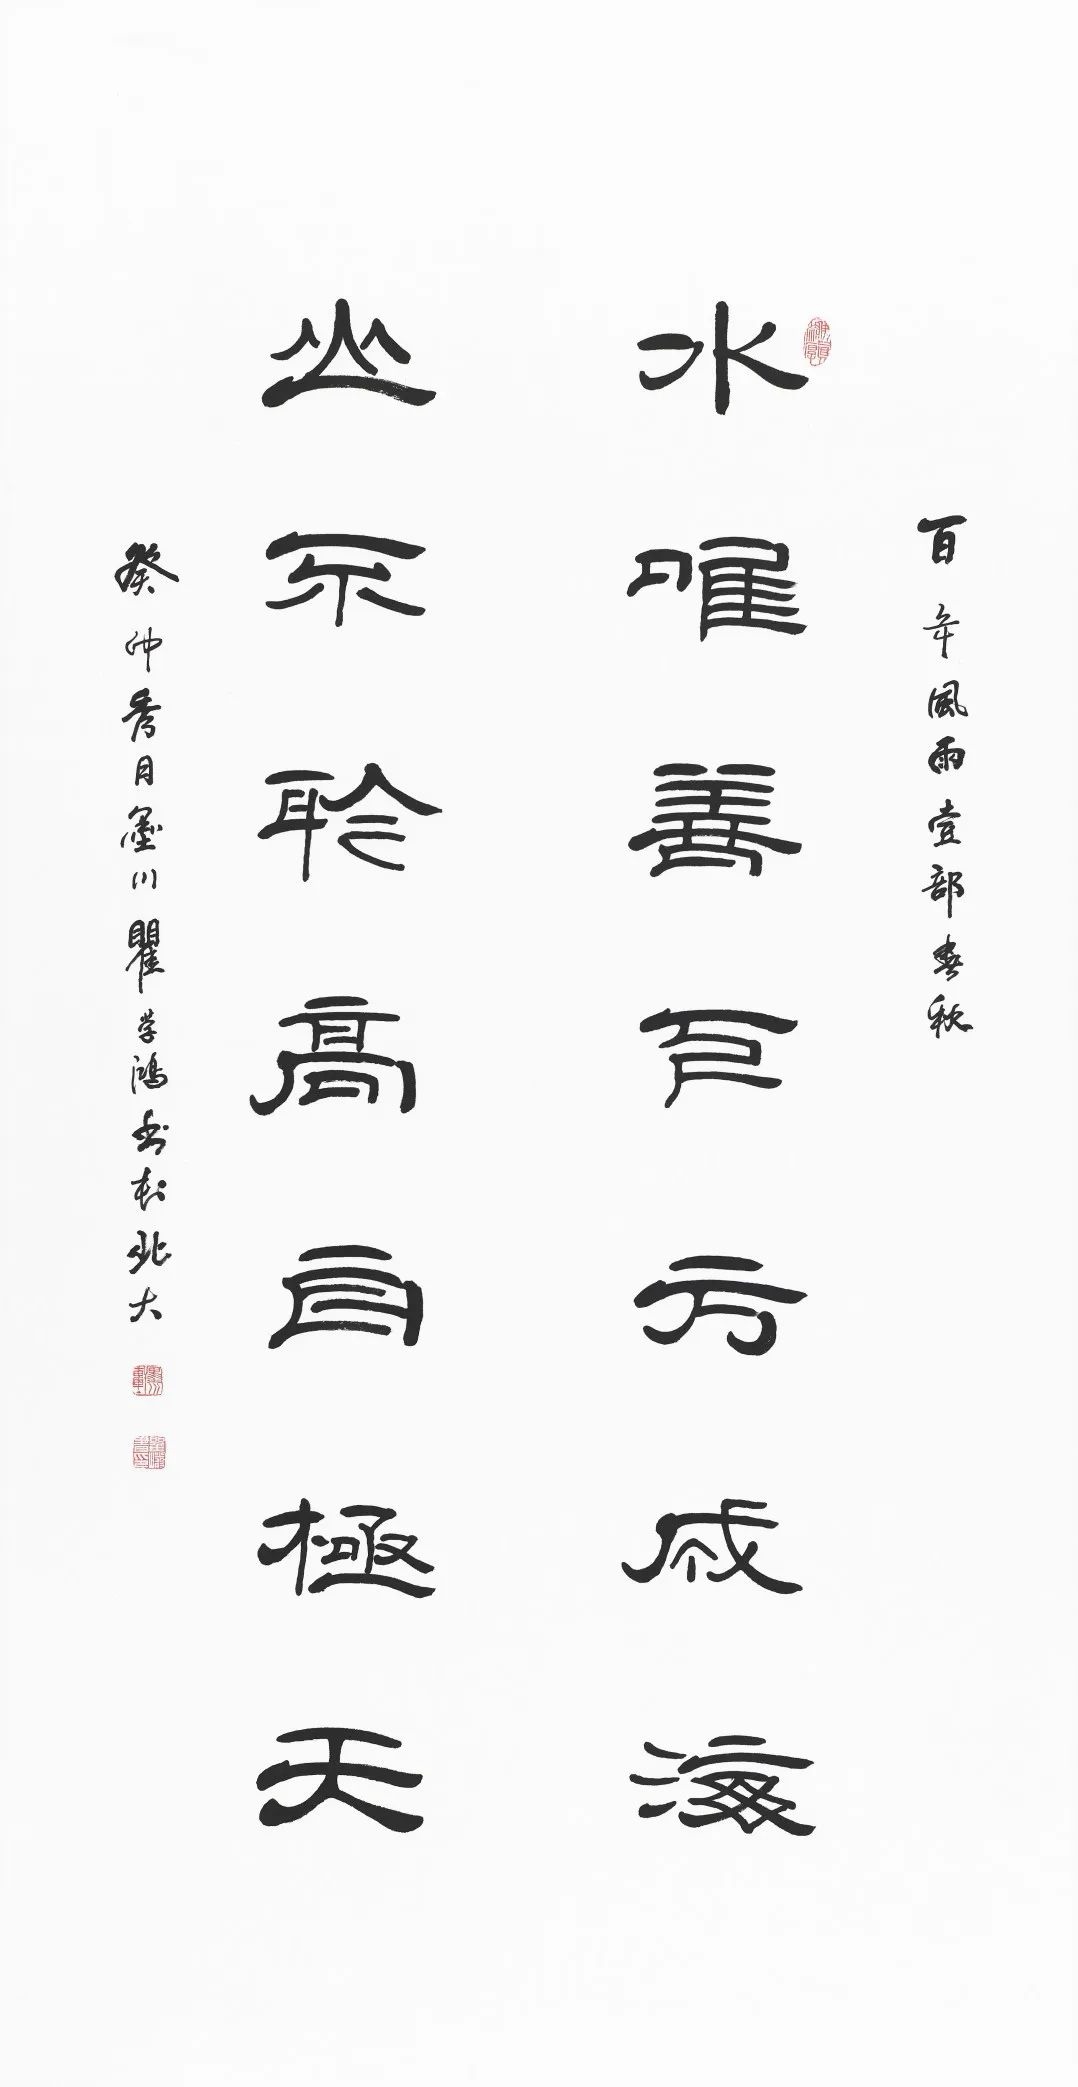 百年風雨壹部春秋
水唯善下方成海
山不矜高自極天
癸卯秀月墨川瞿学鴻书於北大